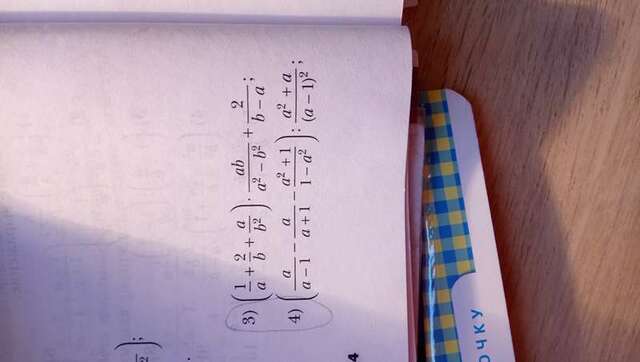 3) (1/a + 2/b + a/b²) · ab/(a² − b²) + 2/(b − a);
4) (a/(a − 1) − a/(a + 1) − (a² + 1)/(1 − a²)) : (a² + a)/(a − 1)²;
4
ОЧКУ